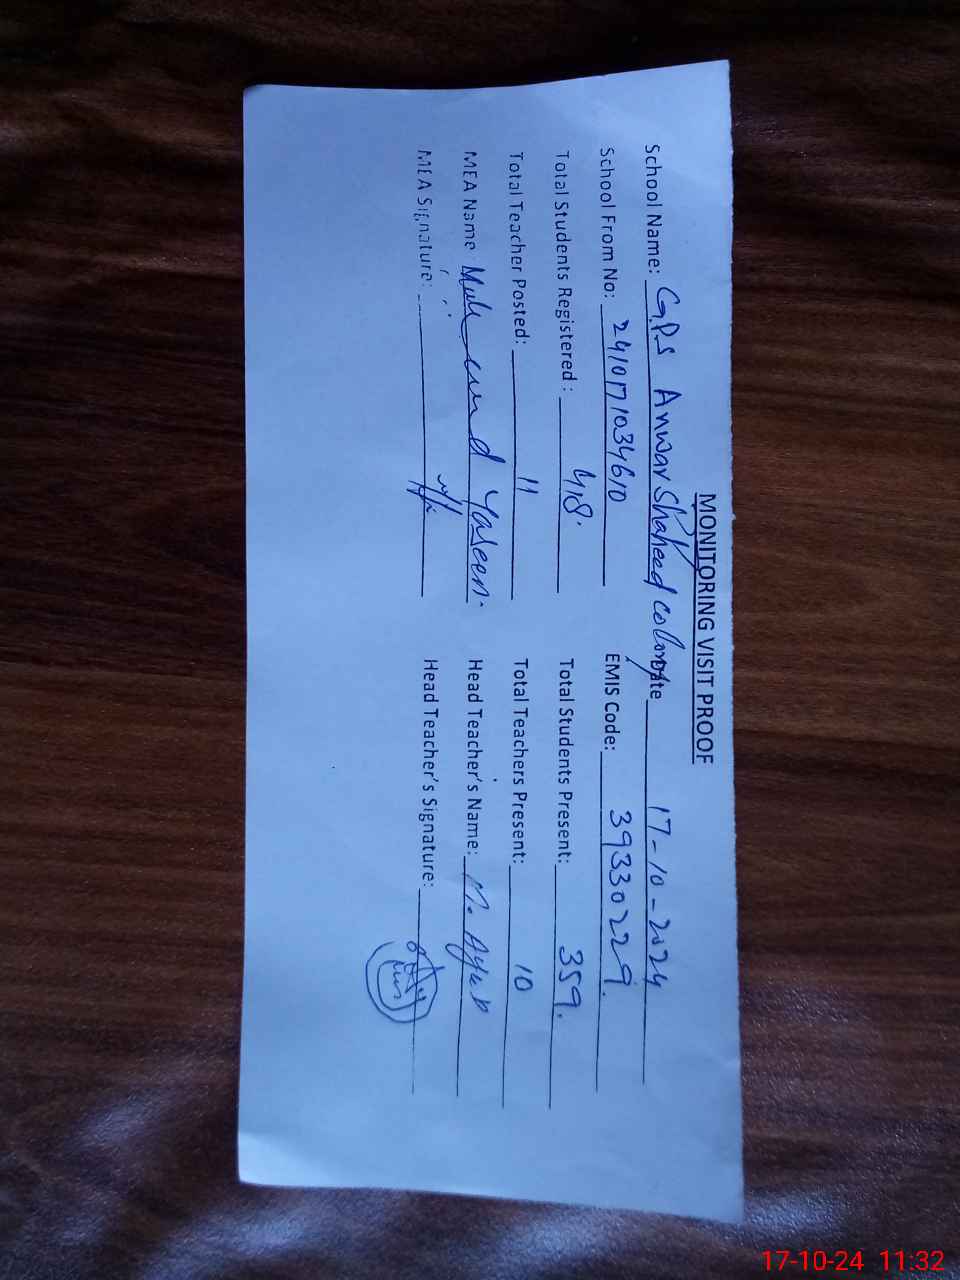 MONITORING VISIT PROOF
School Name: G.P.S Anwar Shaheed colony Date 17-10-2024
School From No: 2410171034610 EMIS Code: 39330229.
Total Students Registered : 418. Total Students Present: 359.
Total Teacher Posted: 11 Total Teachers Present: 10
MEA Name Yaseen. Head Teacher's Name: M. Ayub
MEA Signature: Head Teacher's Signature:
17-10-24 11:32